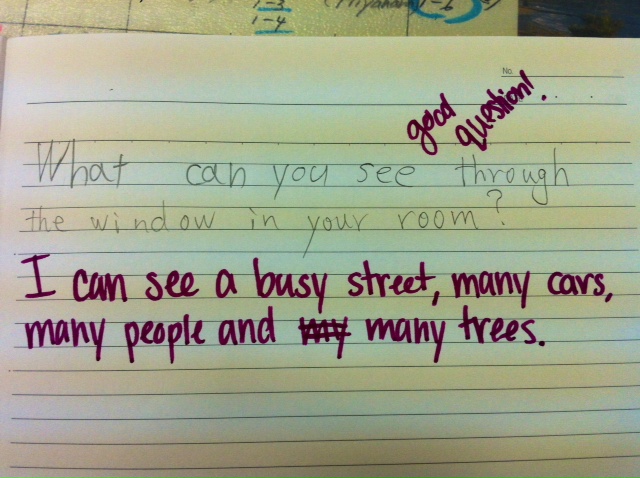 1-3
1-4
1-6
No.
good
question!
What can you see through
the window in your room?
I can see a busy street, many cars,
many people and many trees.